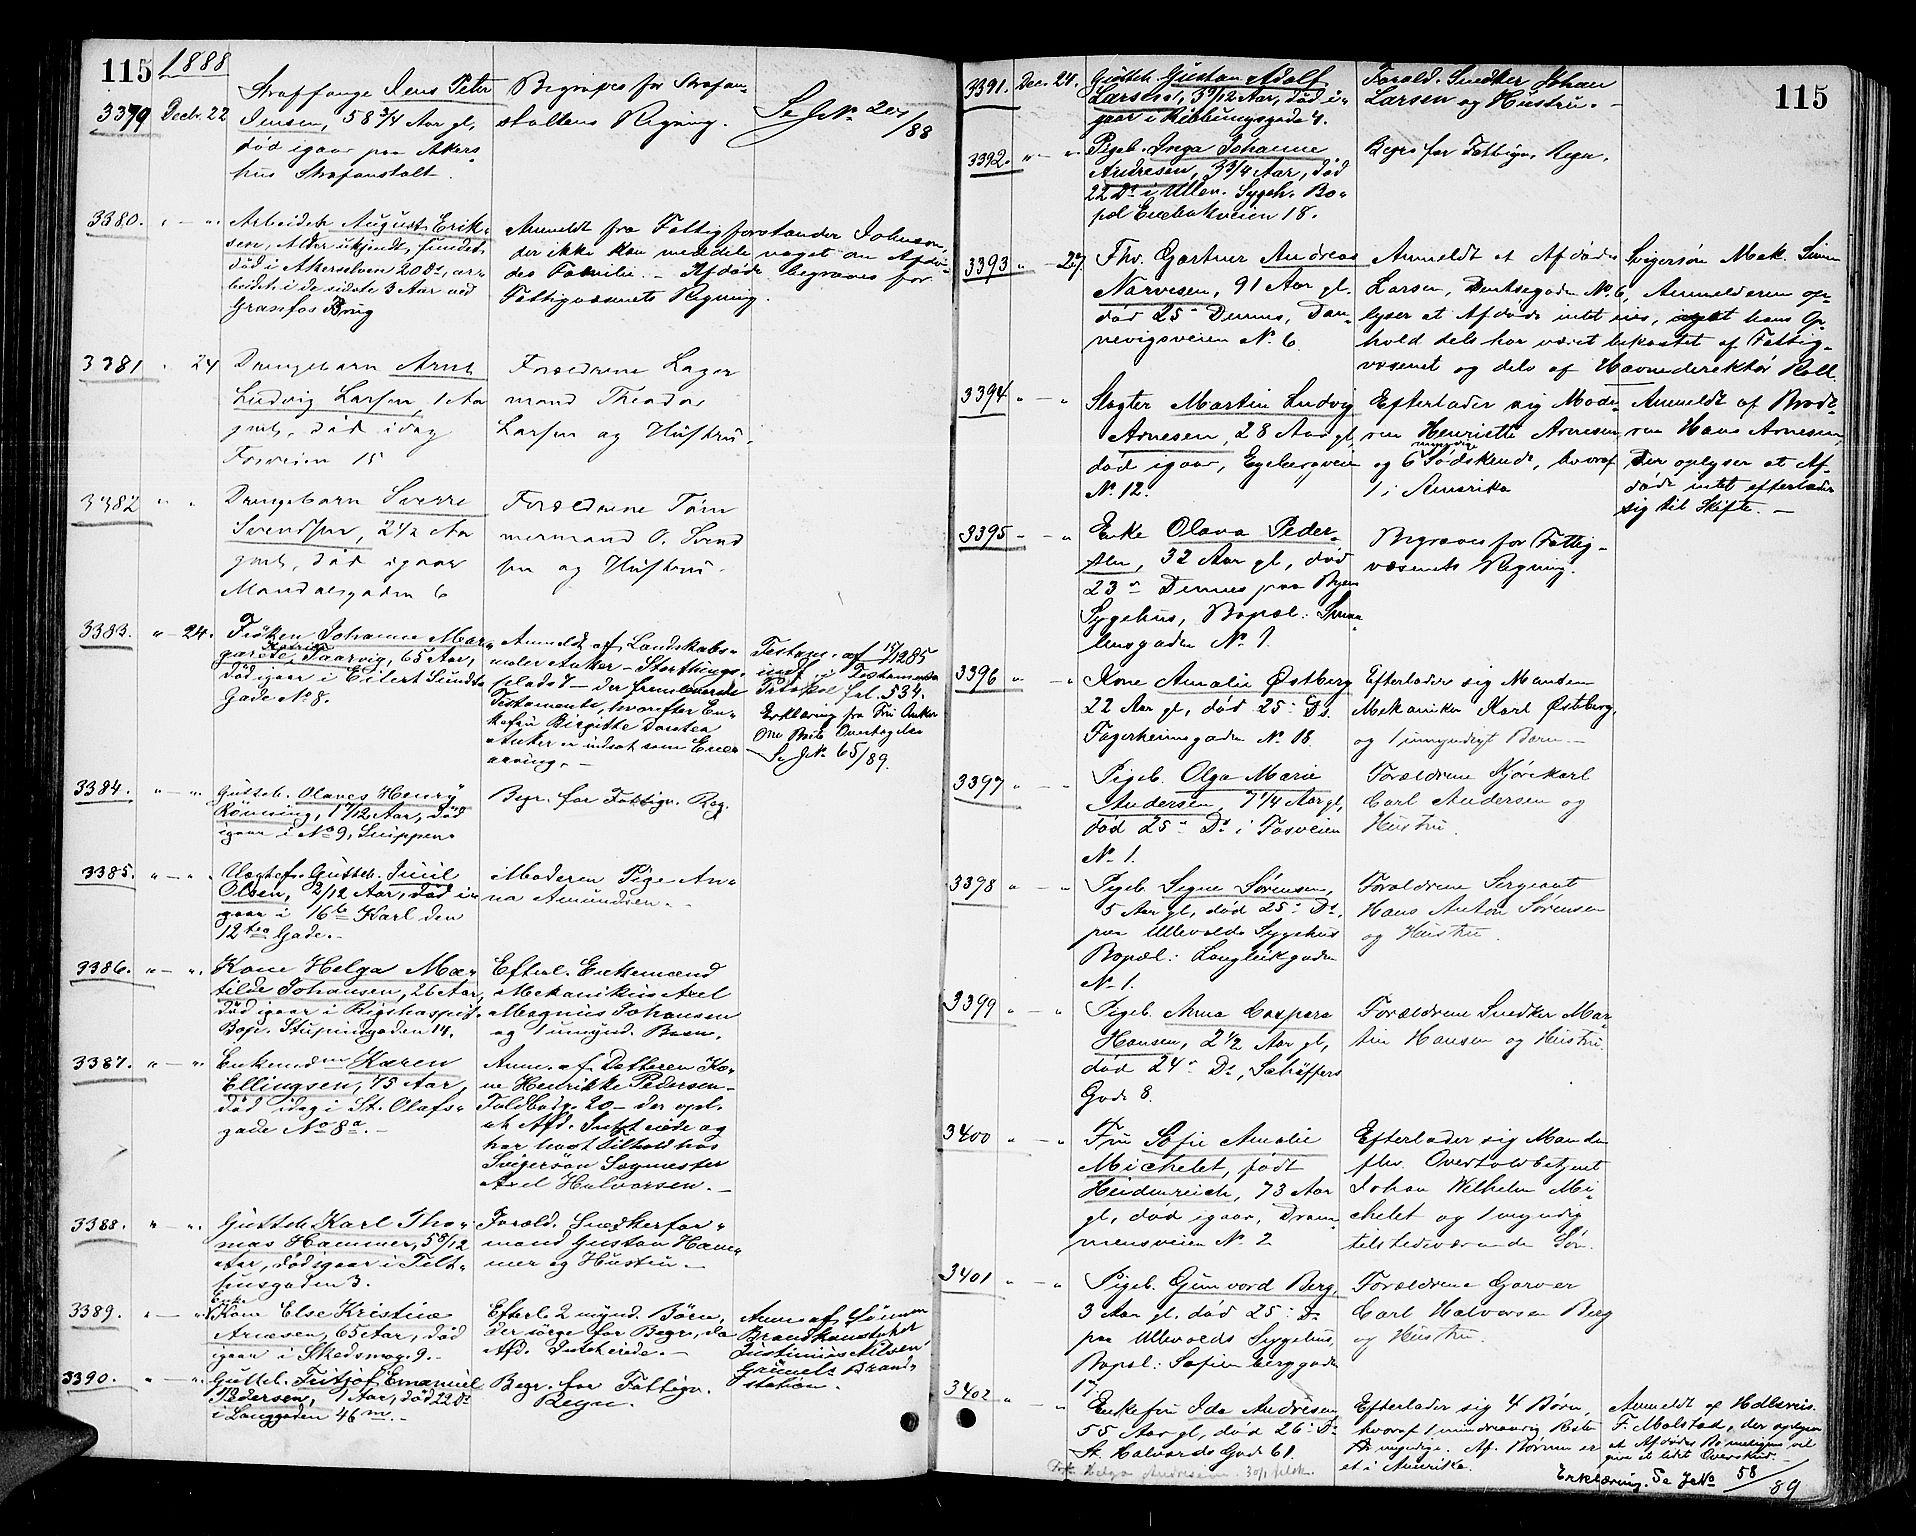 115
1888
3379 Decbr. 22
Straffange Jens Peter
Jensen, 58 3/4 Aar gl,
død igaar paa Akers-
hus Strafanstalt.
Begraves for Strafan-
staltens Regning.
Se J.No.
/88
3380. " - "
Arbeider August Erik-
sen, Alder ukjendt, fundet
død i Akerselven 20 Ds, ar-
beidet i de sidste 3 Aar ved
Granfos Brug
Anmeldt fra Fattigforstander Johnsen,
der ikke kan meddele noget om Afdø-
des Familie. - Afdøde begraves for
Fattigvæsenets Regning.
3381 " 24
Drengebarn Arnt
Ludvig Larsen, 1 Aar
gml, død idag
Fosveien 15
Forældrene Lager
mand Theodor
Larsen og Hustru.
3382 " "
Drengebarn Sverre
Svendsen, 2 1/2 Aar
gml, død igaar
Mandalsgaden 6
Forældrene Tøm
mermand O. Svend
sen og Hustru.
3383. " - 24.
Frøken Johanne Mar-
garete Katrine Taarvig, 65 Aar,
død igaar i Eilert Sundts
Gade No 8.
Anmeldt af Landskabs-
maler Anker - Storthings-
plads 7 - der fremleverede
Testamente, hvorefter En-
kefru Birgitte Dorstea
Anker er indsat som Ene-
arving. -
Testam. af 17/1285
indf. i Testaments
Protokol fol. 534.
Erklæring fra Fru Anker
om Boets Overtagelse
Se J.No. 65/89.
3384. " - "
Gutteb. Olaves Henry
Rönning, 1 7/12 Aar, død
igaar i No 9, Snippen.
Begr. for Fattigv. Reg.
3385. " - "
Uægtef. Gutteb. Juul
Olsen, 2/12 Aar, død i-
gaar i 16b Karl den
12tes Gade. -
Moderen Pige An-
na Amundsen. -
3386. " - "
Kone Helga Ma-
tilde Johansen, 26 Aar,
død igaar i Rigshospit.
Bop. Stupindgaden 14.
Efterl. Enkemand
Mekanikus Axel
Magnus Johansen
og 1 umynd. Barn.
3387. " - "
Enkemadm Karen
Ellingsen, 75 Aar,
død idag i St. Olafs-
gade No 8a. -
Anm. af Datteren Ko-
ne Henrikke Pedersen -
Toldbodg. 20 - der opl.
at Afd. Intet eiede og
har havt Tilhold hos
Svigersøn Sagmester
Axel Halvorsen. -
3388. " - "
Gutteb. Karl Tho-
mas Hammer, 5 8/12
Aar, død igaar i Telt-
husgaden 3.
Foræld. Snedkerfor-
mand Gustav Ham-
mer og Hustru -
3389. " - "
Enke
Kone Else Kristine
Arnesen, 65 Aar, død
igaar i Skedsmog. 9. -
Efterl. 2 mynd. Börn,
der sørge for Begr., da
Afd. Intet eiede. -
Anm. af Sönnen
Brandkonstabel
Justinius Nilsen
Grünerl. Brand-
station.
3390. " - "
Gutteb. Fritjof Emanuel
Pedersen, 1 Aar, död 22 Ds
i Langgaden 46 m. -
Begr. for Fattigv.
Regn.
115
3391. Dec. 24.
Gutteb. Gustav Adolf
Larsen, 3 9/12 Aar, død i-
gaar i Ribbungsgade 4.
Foræld. Snedker Johan
Larsen og Hustru. -
3392. " - "
Pigeb. Inga Johanne
Andresen, 3 3/4 Aar, död
22 Ds i Ullev. Sygeh. Bo-
pæl Enebakveien 18.
Begrs for Fattigv. Regn.
3393 " - 27.
Fhv. Gartner Andreas
Narvesen, 91 Aar gl.
død 25 Dennes, Dan-
nevigsveien No. 6.
Anmeldt at Afdødes Svigersøn Mek. Simen
Larsen, Dentsegaden No. 6, Anmelderen op-
lyser at Afdøde intet eies, hans Op-
hold dels har været bekostet af Fattig-
væsenet og dels af Havnedirektør Roll.
3394 " - "
Slagter Martin Ludvig
Arnesen, 28 Aar gl,
død igaar, Egebergveien
No. 12.
Efterlader sig Mode-
ren Henriette Arnesen
og 6 myndige Sødskende, hvoraf
1 i Amerika
Anmeldt af Brode-
ren Hans Arnesen,
Der oplyser at Af-
døde intet efterlader
sig til Skifte. -
3395 " - "
Enke Olava Peder-
sen, 32 Aar gl, død
23 Dennes paa Byens
Sygehus, Bopæl: Smaa-
lensgaden No. 1.
Begraves for Fattig-
væsenets Regning.
3396 " - "
Kone Amalie Østberg
22 Aar gl, død 25 Ds.
Fagerheimgaden No. 18.
Efterlader sig Manden
Mekaniker Karl Østberg,
og 1 umyndigt Barn -
3397 " - "
Pigeb. Olga Marie
Andersen, 7 1/4 Aar gl,
død 25 Ds i Fosveien
No. 1.
Forældrene Kjørekarl
Carl Andersen og
Hustru.
3398 " - "
Pigeb. Signe Sørensen,
5 Aar gl, død 25 Ds,
paa Ullevolds Sygehus
Bopæl: Langleikgaden
No. 1.
Forældrene Sergeant
Hans Anton Sørensen
og Hustru.
3399 " - "
Pigeb. Anna Caspara
Hansen, 2 1/2 Aar gl,
død 24 Ds, Schøffers
Gade 8.
Forældrene Snedker Mar-
tin Hansen og Hustru.
3400 " - "
Fru Sofie Amalie
Michelet, født
Heidenreich, 73 Aar
gl, død igaar, Dram-
mensveien No. 2
Efterlader sig Manden
fhv. Overtoldbetjent
Johan Wilhelm Mi-
chelet og 1 myndig
tilstedeværende Søn.
3401 " - "
Pigeb. Gunvord Berg,
3 Aar gl, død 25 Ds
paa Ullevolds Sygehus,
Bopæl: Sofienberggade
17.
Forældrene Garver
Carl Halvorsen Berg
og Hustru.
3402 " - "
Enkefru Ida Andresen,
55 Aar gl, død 26 Ds
St. Halvards Gade 61.
Efterlader sig 4 Børn,
hvoraf 1 mindreaarig Resten
myndige. Af Børnene er
et i Amerika.
Anmeldt af
F. Malstad, der oplyser
at Afdødes Bo muligens vil
give et lidet Overskud.
Erklæring. Se J.No 58/89
Helga Andresen.